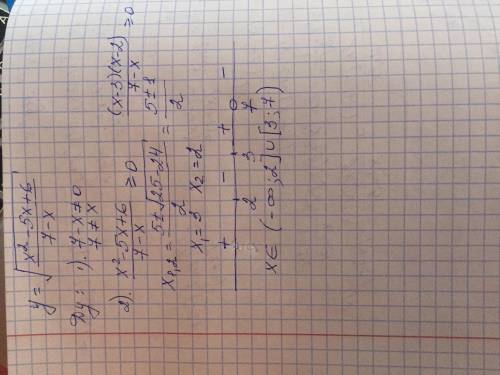 y = √((x² - 5x + 6)/(7 - x))
Dy: 1). 7 - x ≠ 0
7 ≠ x
2). (x² - 5x + 6)/(7 - x) ≥ 0 (x-3)(x-2)/(7 - x) ≥ 0
x₁,₂ = (5 ± √(25 - 24))/2 = (5 ± 1)/2
x₁ = 3 x₂ = 2
+ - + -
2 3 7
x ∈ (-∞; 2] ∪ [3; 7)